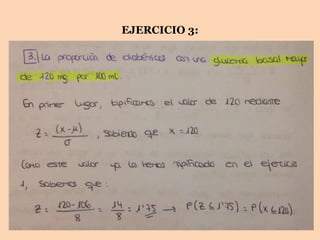 EJERCICIO 3:
3. La proporción de diabéticos con una glucemia basal mayor
de 120 mg por 100 mL.
En primer lugar, tipificamos el valor de 120 mediante
Z = (x-μ)/σ , sabiendo que x = 120
Como este valor ya lo hemos tipificado en el ejercicio
1, sabemos que:
Z = 120-106/8 = 14/8 = 1'75 → P(Z ≤ 1'75) = P(x ≤ 120).